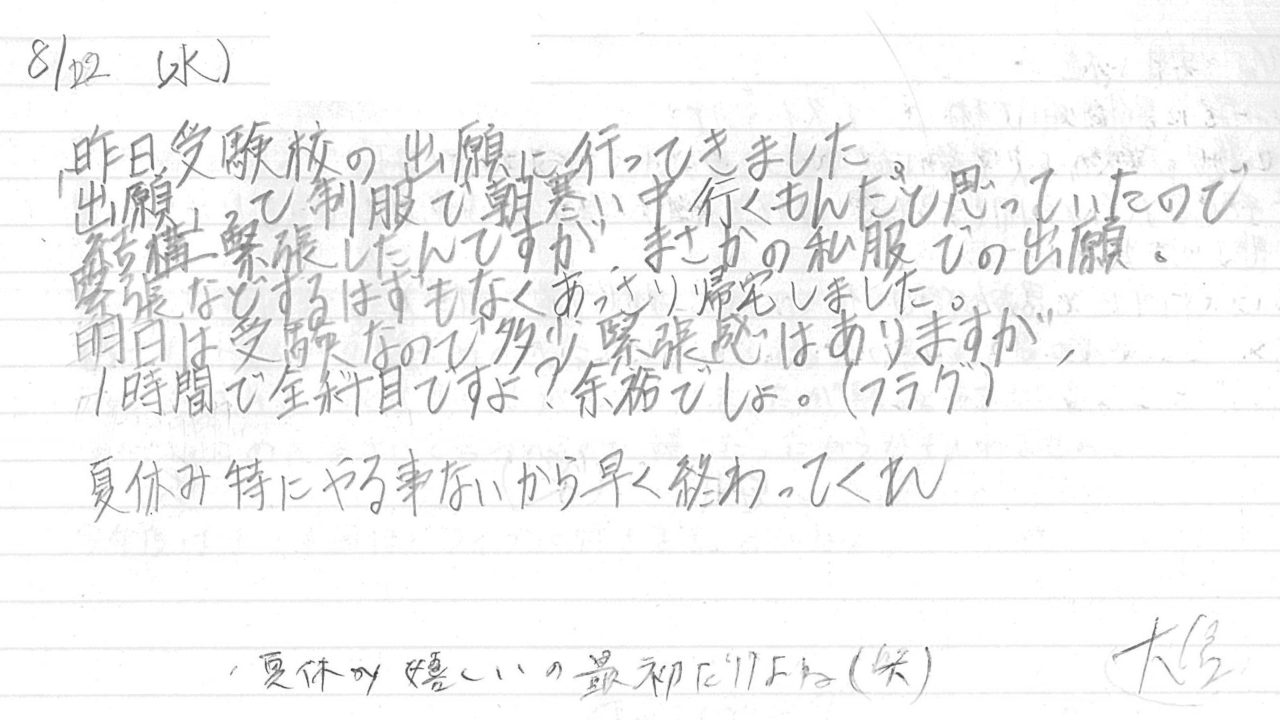 8/22 (水)
昨日受験校の出願に行ってきました
「出願」って制服で朝寒い中行くもんだと思っていたので
結構緊張したんですが、まさかの私服での出願。
緊張などするはずもなくあっさり帰宅しました。
明日は受験なので多少緊張感はありますが、
1時間で全科目ですよ?余裕でしょ。(フラグ)
夏休み特にやる事ないから早く終わってくれ
夏休み嬉しいの最初だけよね(笑)